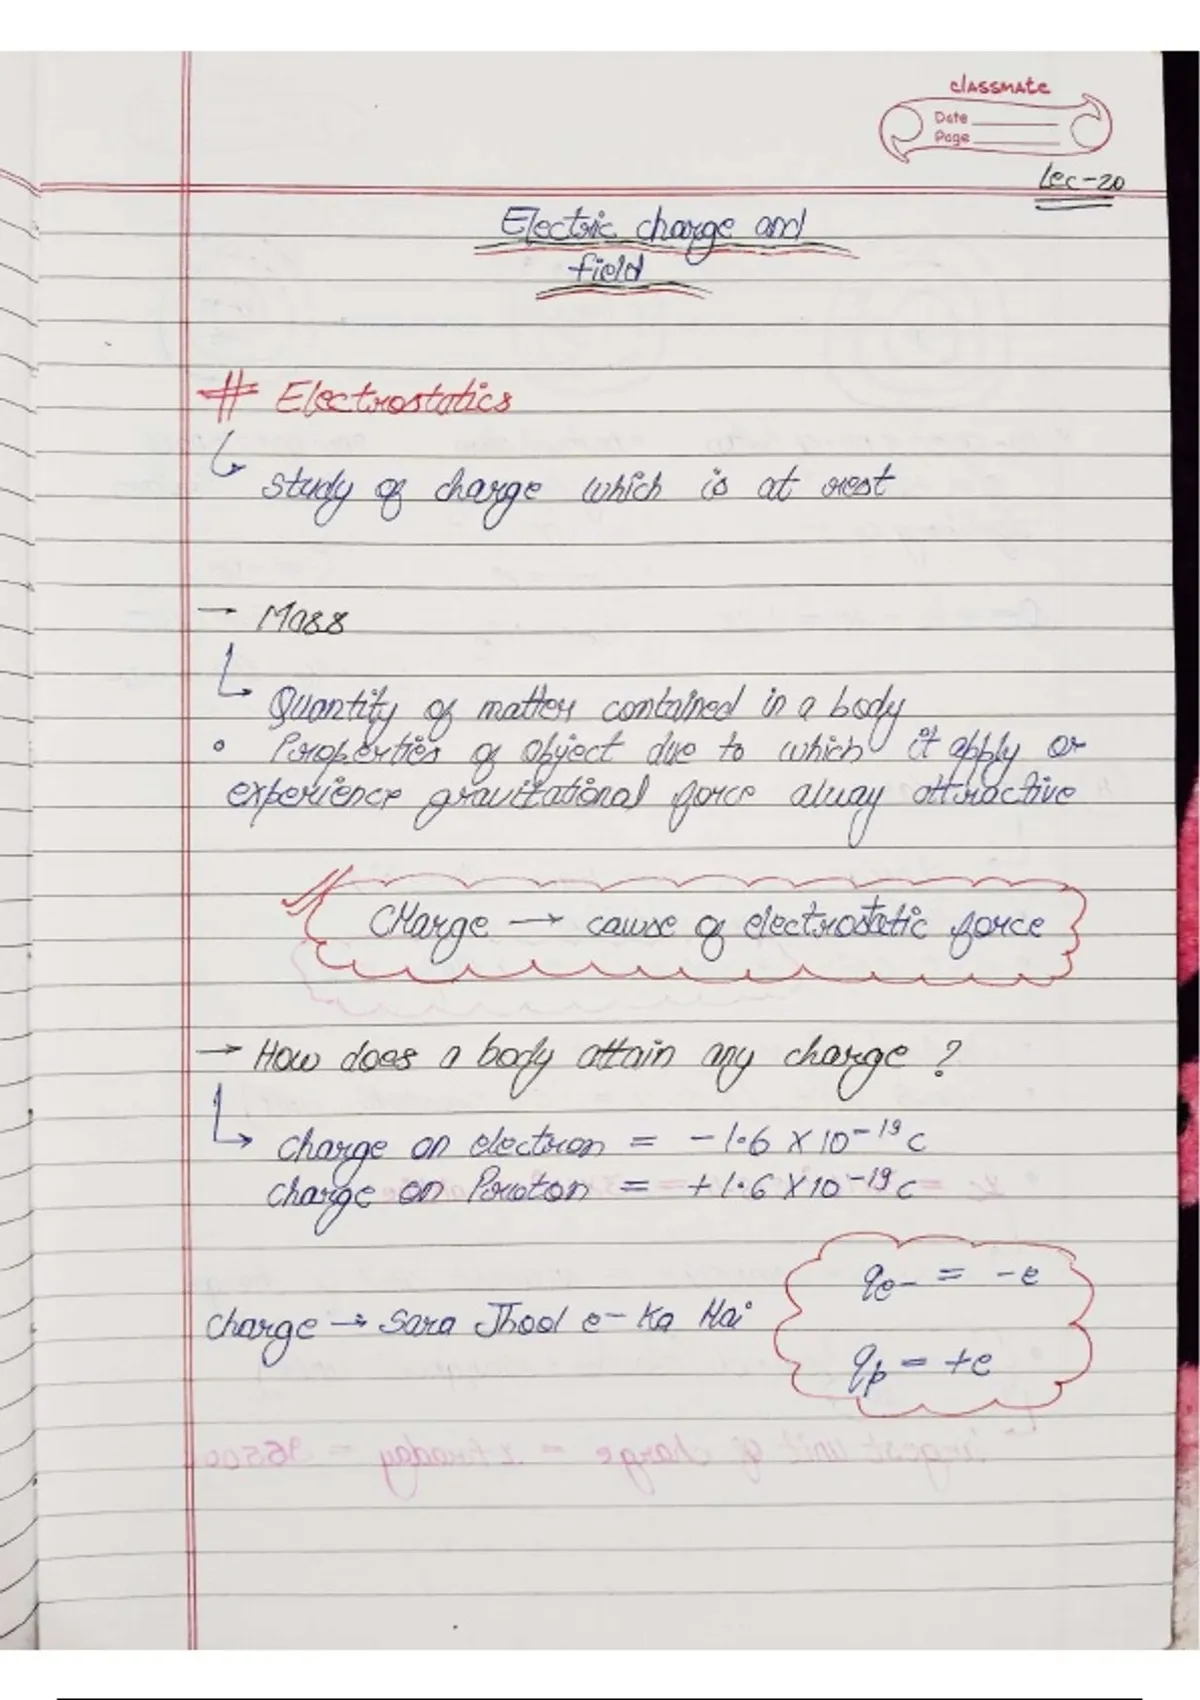 classmate
Date
Page
Lec-20
Electric charge and
field
# Electrostatics
study of charge which is at rest
→ Mass
Quantity of matter contained in a body
• Properties of object due to which it apply or
experience gravitational force alway attractive
Charge → cause of electrostatic force
→ How does a body attain any charge ?
charge on electron = -1.6 X 10-19 C
charge on Proton = +1.6 X 10-19 C
qe- = -e
charge → Sara Jhool e- Ka Hai
qp = +e